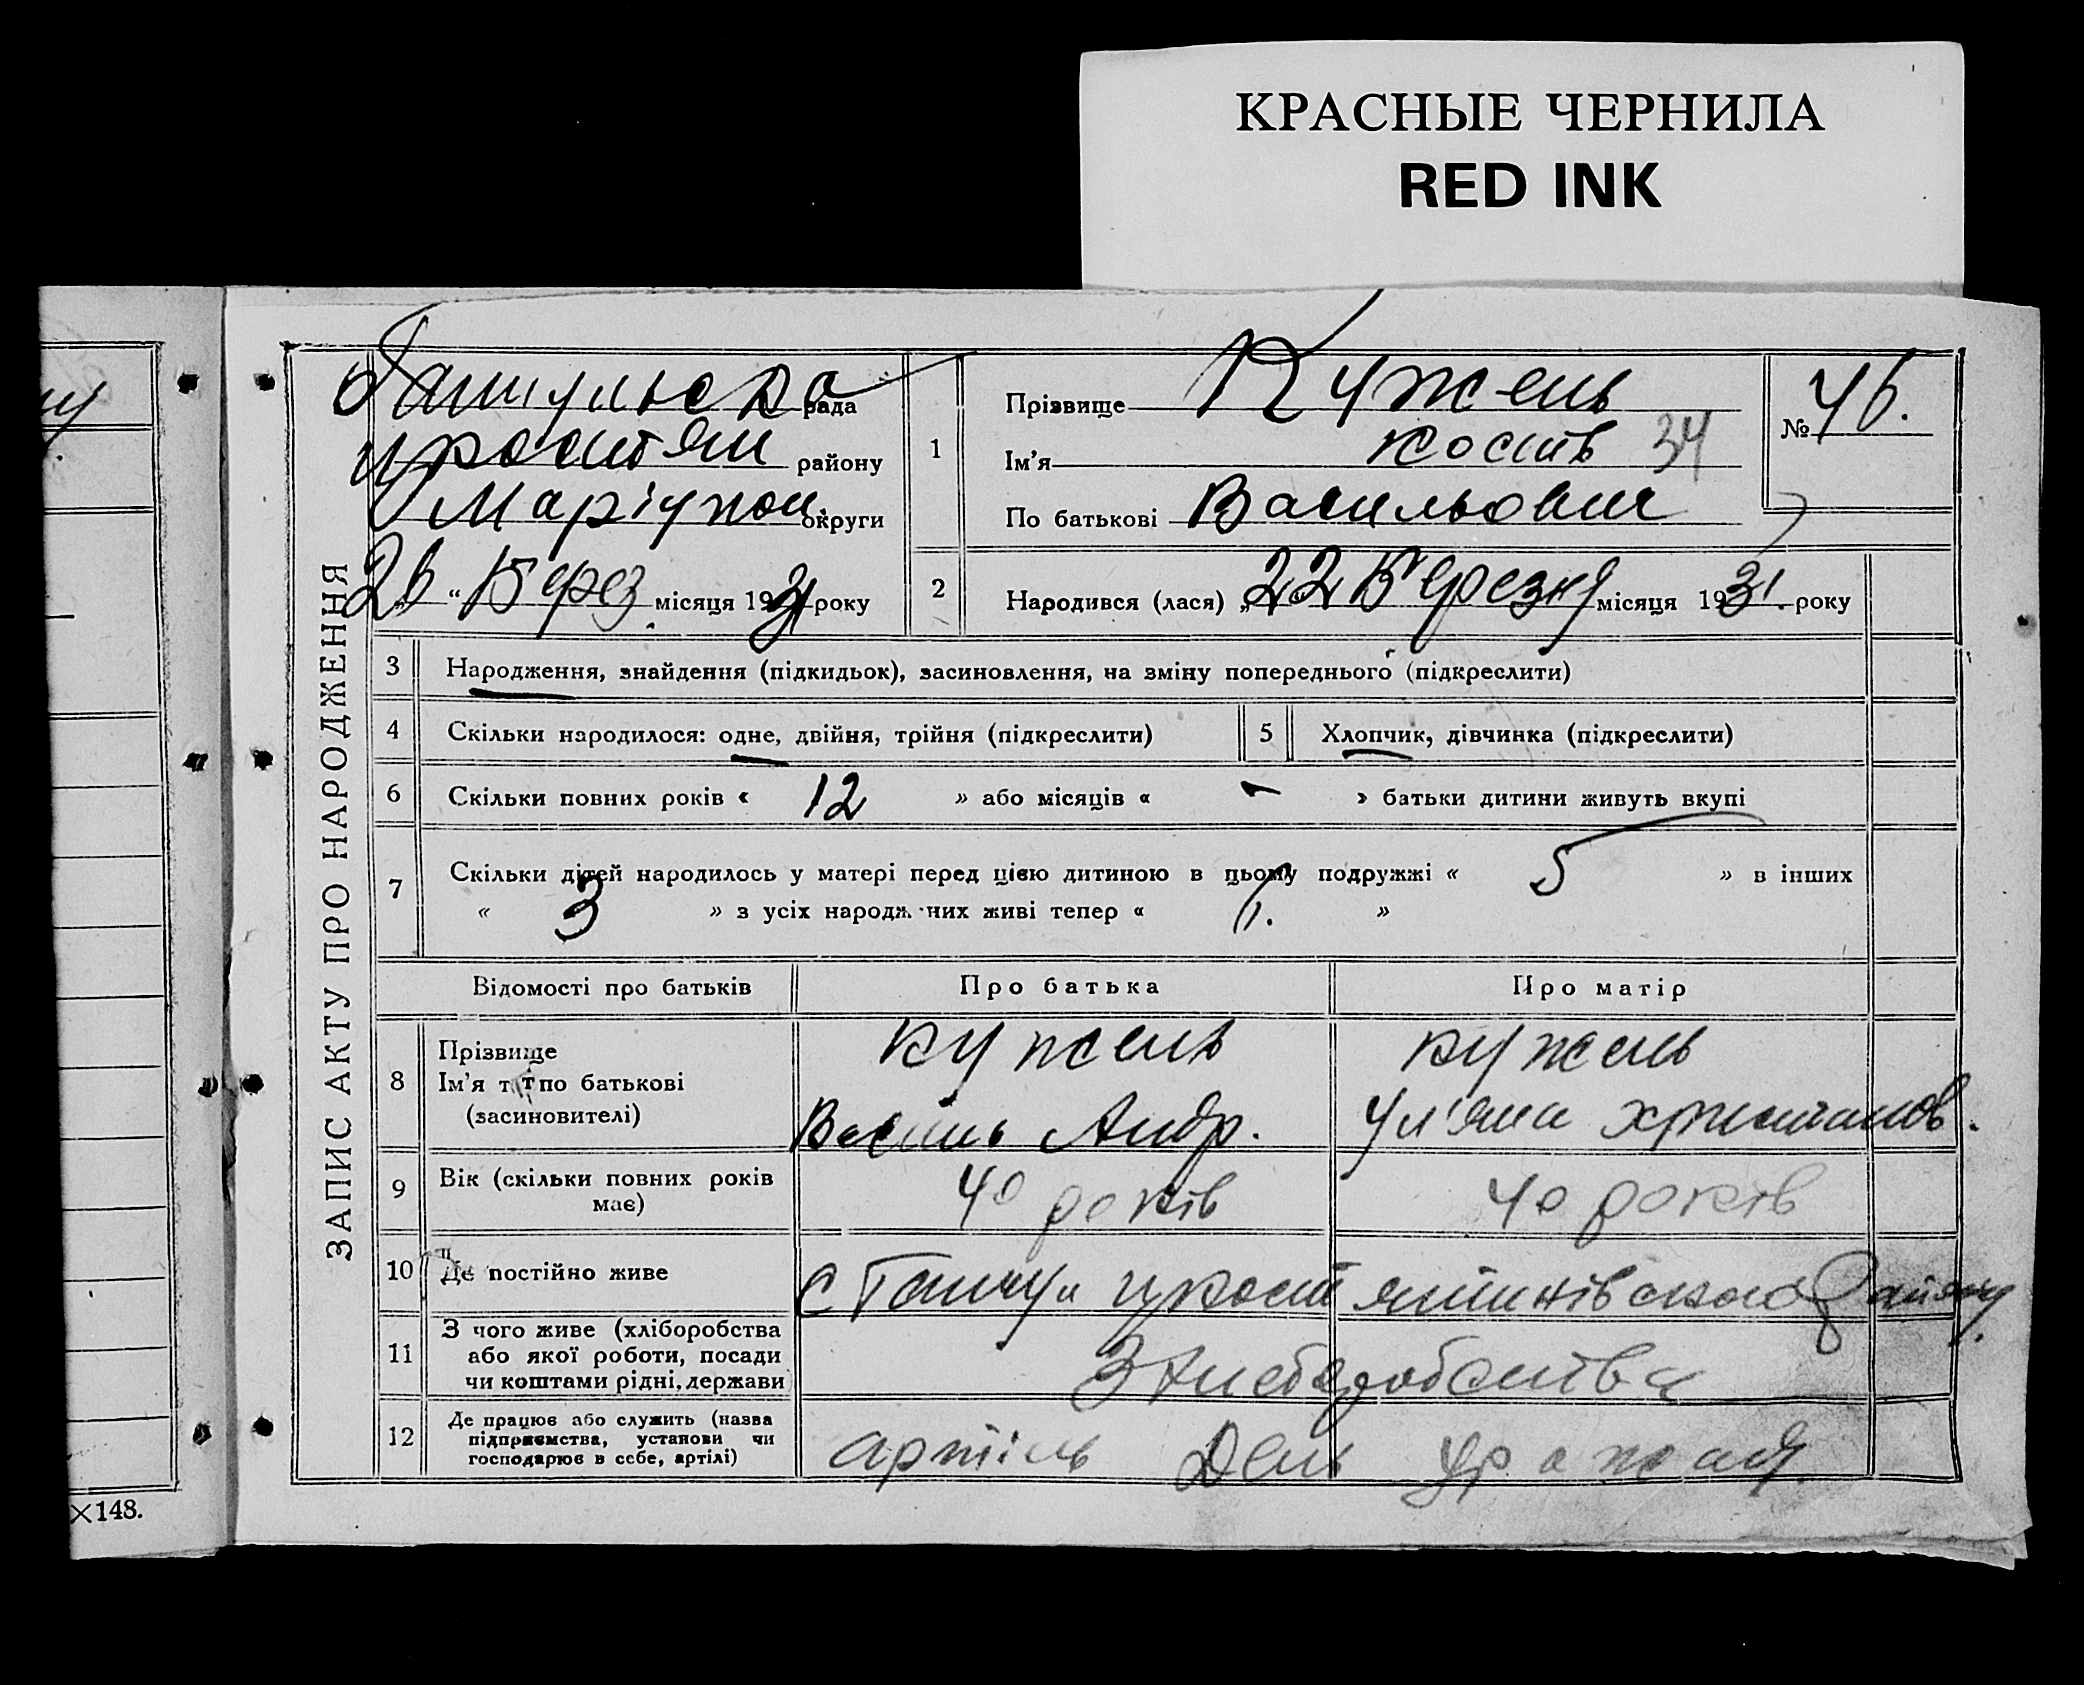 КРАСНЫЕ ЧЕРНИЛА
RED INK
ЗАПИС АКТУ ПРО НАРОДЖЕННЯ
рада
району
Маріупол. округи
26 " Берез місяця 1931 року
1
Прізвище Кужель
Ім'я Кость 34
По батькові Васильович
№ 46.
2
Народився (лася) „22 Березня місяця 1931. року
3 Народження, знайдення (підкидьок), засиновлення, на зміну попереднього (підкреслити)
4 Скільки народилося: одне, двійня, трійня (підкреслити)
5 Хлопчик, дівчинка (підкреслити)
6 Скільки повних років « 12 » або місяців « - » батьки дитини живуть вкупі
7 Скільки дітей народилось у матері перед цією дитиною в цьому подружжі « 5 » в інших
« 3 » з усіх народж них живі тепер « »
Відомості про батьків Про батька Про матір
8 Прізвище
Ім'я т т по батькові
(засиновителі)
Кужель
Василь Андр.
Кужель
Ул'яна Христианов.
9 Вік (скільки повних років має)
40 років
40 років
10 Де постійно живе
району
11 З чого живе (хліборобства
або якої роботи, посади
чи коштами рідні, держави
З хлеборобства
12 Де працює або служить (назва
підприємства, установи чи
господарює в себе, артілі)
артіль День Урожая
×148.